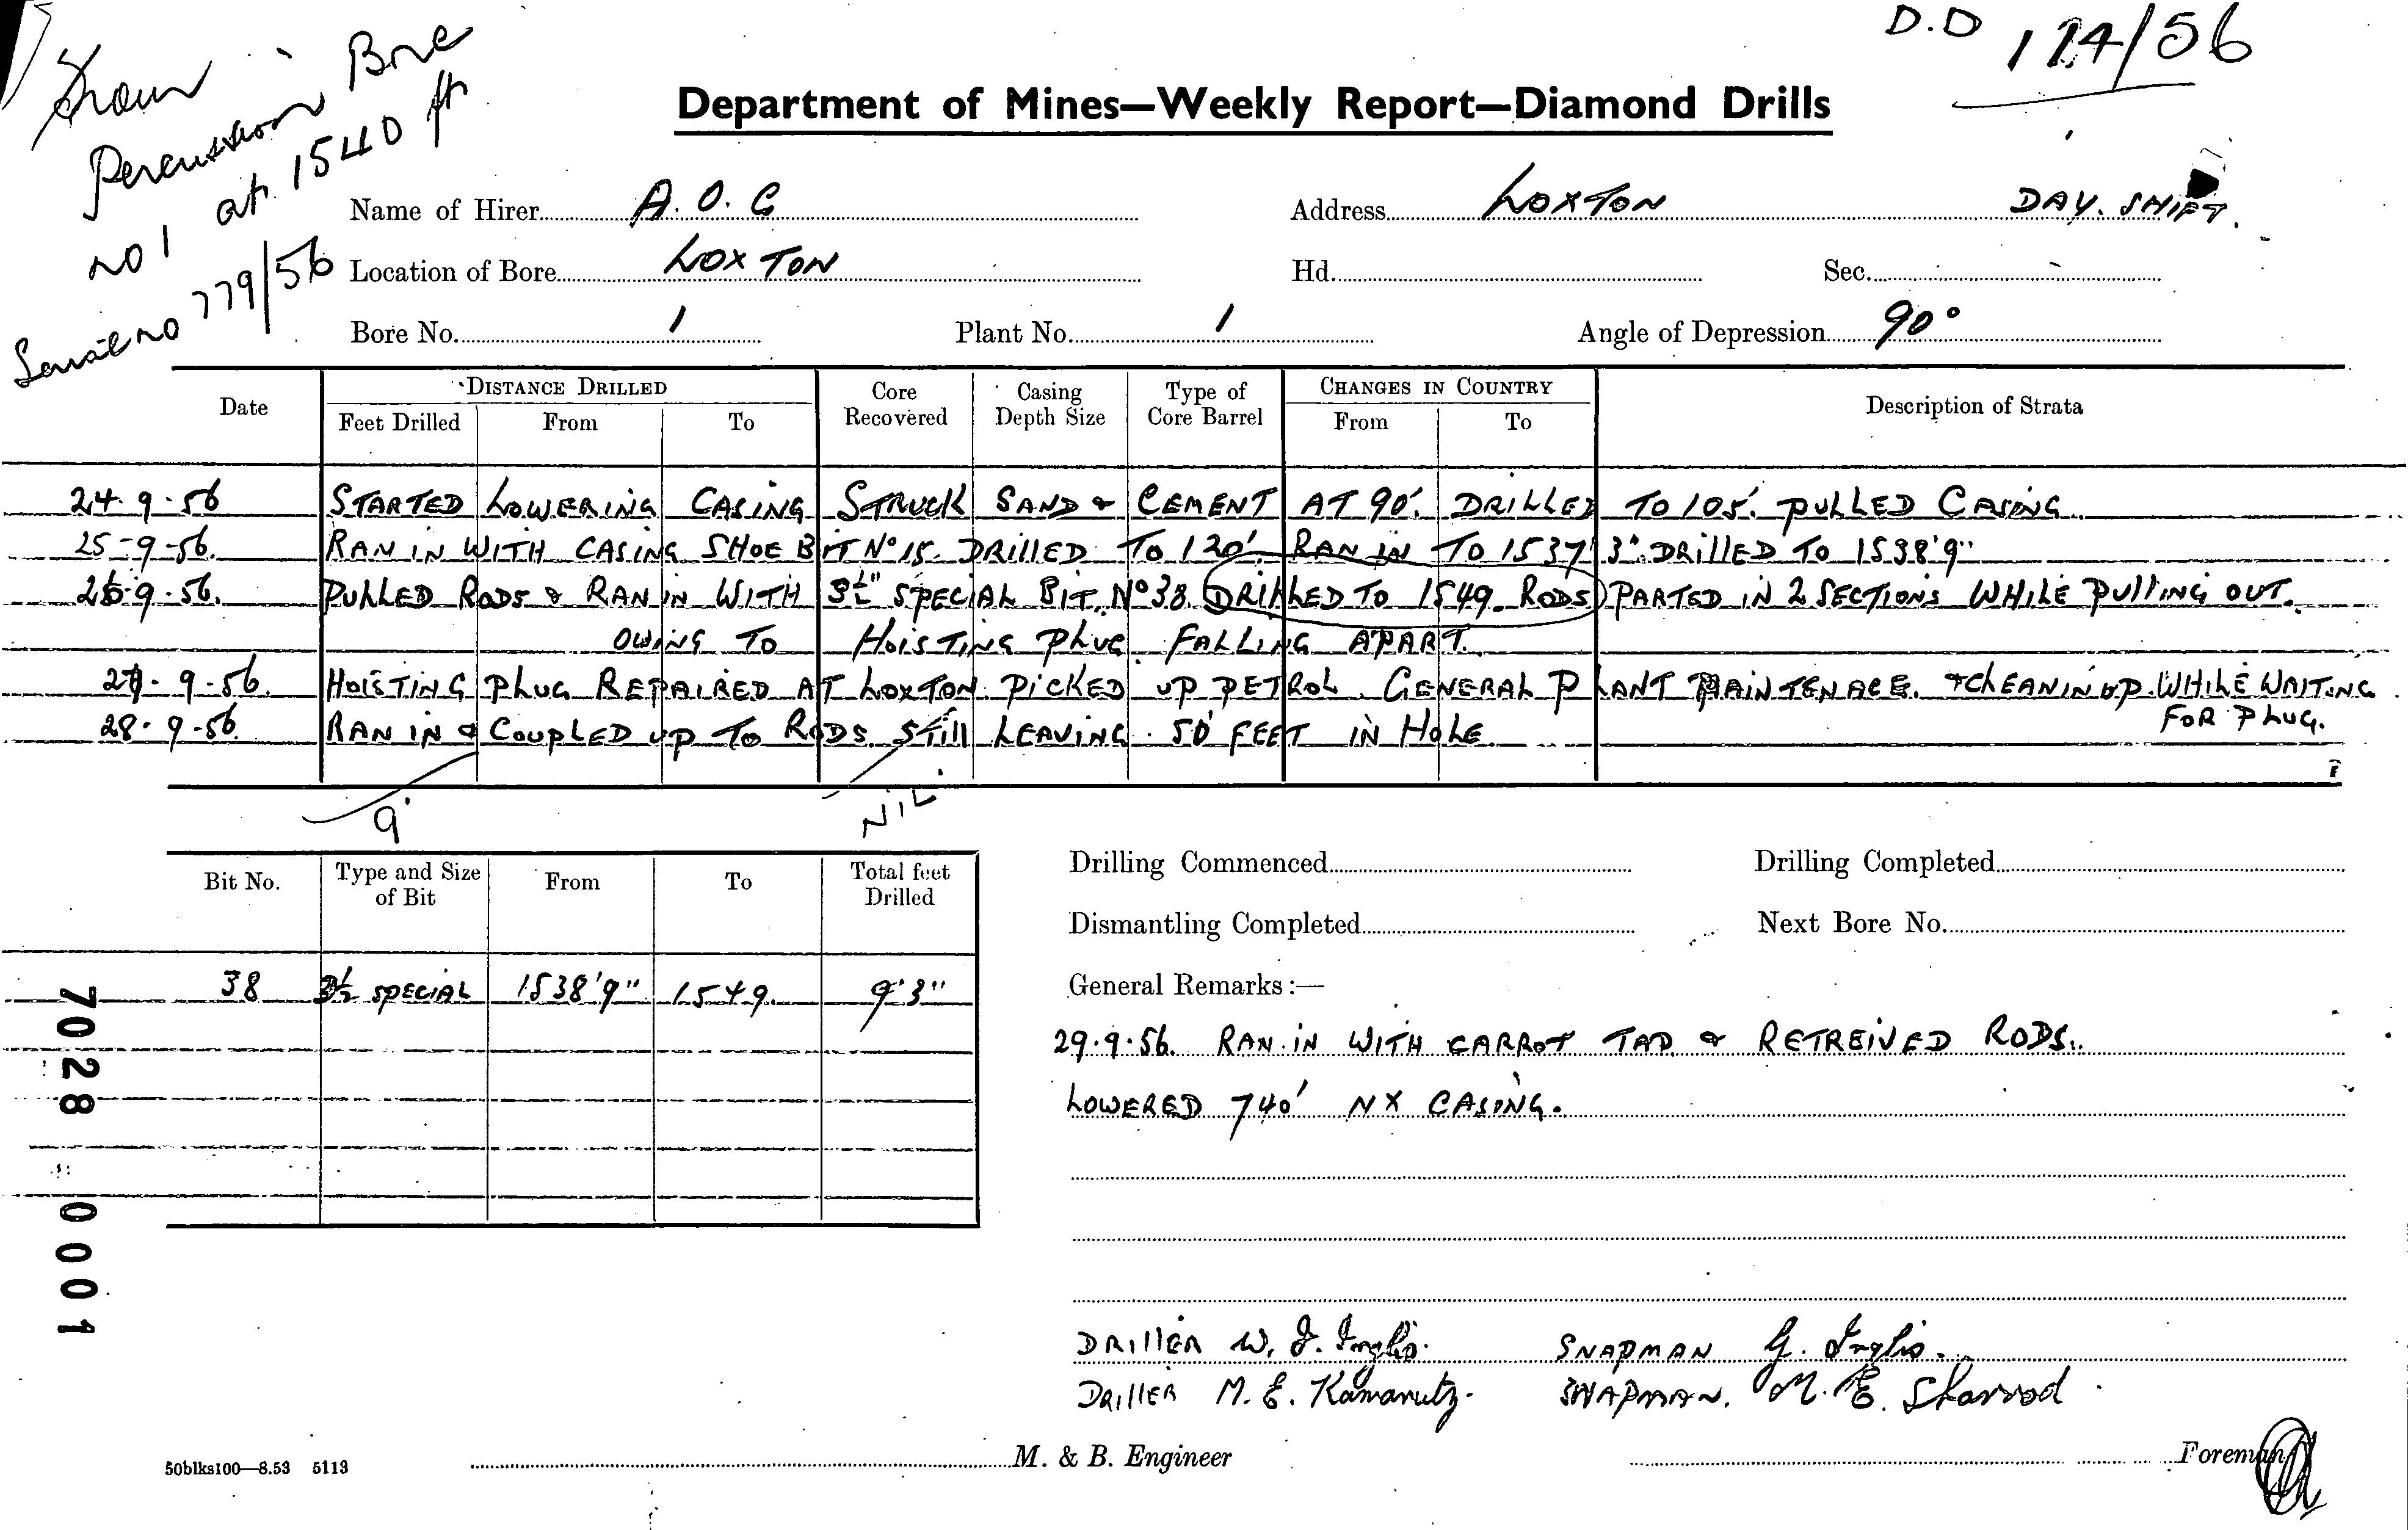 D.D 124/56
From Bore
Percussion
no 1 at 1540 ft
Serial no 779/56
Department of Mines—Weekly Report—Diamond Drills
Name of Hirer A. O. G Address LOXTON DAY. SHIFT.
Location of Bore LOXTON Hd. Sec.
Bore No. 1 Plant No. 1 Angle of Depression 90°
Date DISTANCE DRILLED Core Recovered Casing Depth Size Type of Core Barrel CHANGES IN COUNTRY Description of Strata
Feet Drilled From To From To
24.9.56 STARTED LOWERING CASING STRUCK SAND & CEMENT AT 90'. DRILLED TO 105'. PULLED CASING.
25-9-56. RAN IN WITH CASING SHOE BIT No 15. DRILLED TO 120'. RAN IN TO 1537' 3". DRILLED TO 1538'9"
26.9.56. PULLED RODS & RAN IN WITH 3½" SPECIAL BIT. No 38. DRILLED TO 1549. RODS PARTED IN 2 SECTIONS WHILE PULLING OUT.
OWING TO HOISTING PLUG FALLING APART.
27.9.56. HOISTING PLUG REPAIRED AT LOXTON. PICKED UP PETROL. GENERAL PLANT MAINTENACE. & CLEANIN UP. WHILE WAITING
FOR PLUG.
28.9.56. RAN IN & COUPLED UP TO RODS STILL LEAVING. 50 FEET IN HOLE.
9' NIL
Bit No. Type and Size of Bit From To Total feet Drilled
38 3½ SPECIAL 1538'9" 1549. 9'3"
Drilling Commenced Drilling Completed
Dismantling Completed Next Bore No.
General Remarks:—
29.9.56. RAN IN WITH CARROT TAP & RETREIVED RODS.
LOWERED 740' NX CASING.
DRILLER W. J. Inglis. SNAPMAN G. Inglis.
DRILLER M. E. Kamanutz. SNAPMAN. M. E. Sharrod.
50blks100—8.53 5113 M. & B. Engineer Foreman
7028 0001